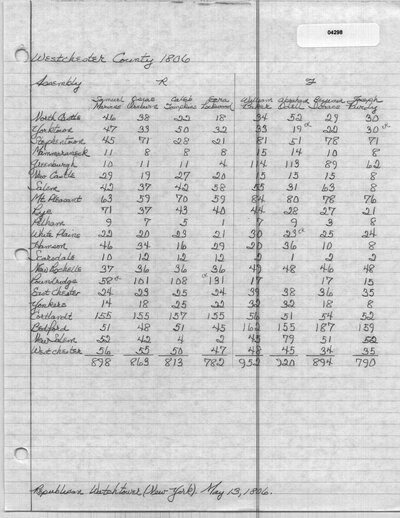 04298
Westchester County 1806
Assembly R F
Samuel George Caleb Ezra William Abraham Benjamin Joseph
Tompkins Lockwood Barker Odell Isaacs Purdy
North Castle 46 38 22 18 34 52 29 30
Yorktown 47 33 50 32 33 19 22 30
Stephentown 45 71 28 21 81 51 78 71
Mamaroneck 11 8 8 8 15 14 10 8
Greenburgh 10 11 11 4 114 113 89 62
New Castle 29 19 27 20 15 13 15 8
Salem 42 37 42 58 55 31 63 8
Mt Pleasant 63 59 70 59 84 80 78 76
Rye 71 37 43 40 44 28 27 21
Pelham 9 7 5 1 7 9 3 8
White Plains 22 20 23 21 30 23 25 24
Harrison 46 34 16 29 20 36 10 8
Scarsdale 10 12 12 12 2 1 2 2
New Rochelle 37 36 36 36 49 48 46 48
Poundridge 58 101 108 131 17 17 15
East Chester 24 23 25 24 39 38 36 35
Yonkers 14 18 25 22 32 32 18 8
Cortlandt 155 155 157 155 56 51 54 52
Bedford 51 48 51 45 162 155 187 159
New Salem 52 42 4 2 45 79 51 52
Westchester 56 55 50 47 48 45 34 35
898 863 813 782 952 920 894 790
Republican Watchtower (New York). May 13, 1806.